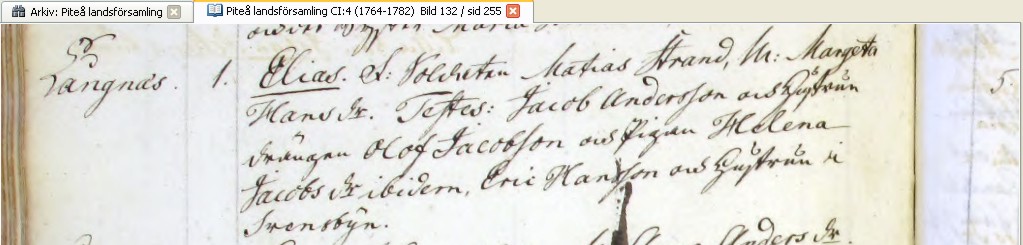 Arkiv: Piteå landsförsamling
Piteå landsförsamling CI:4 (1764-1782) Bild 132 / sid 255
Maria
Långnäs. 1. Elias. F: Soldaten Matias Strand, M: Margeta
Hans dr. Testes: Jacob Andersson och Hustrun 5.
drängen Olof Jacobson och Pigan Helena
Jacobs dr ibidem, Eric Hansson och Hustrun i
Svensbyn.
Anders dr.